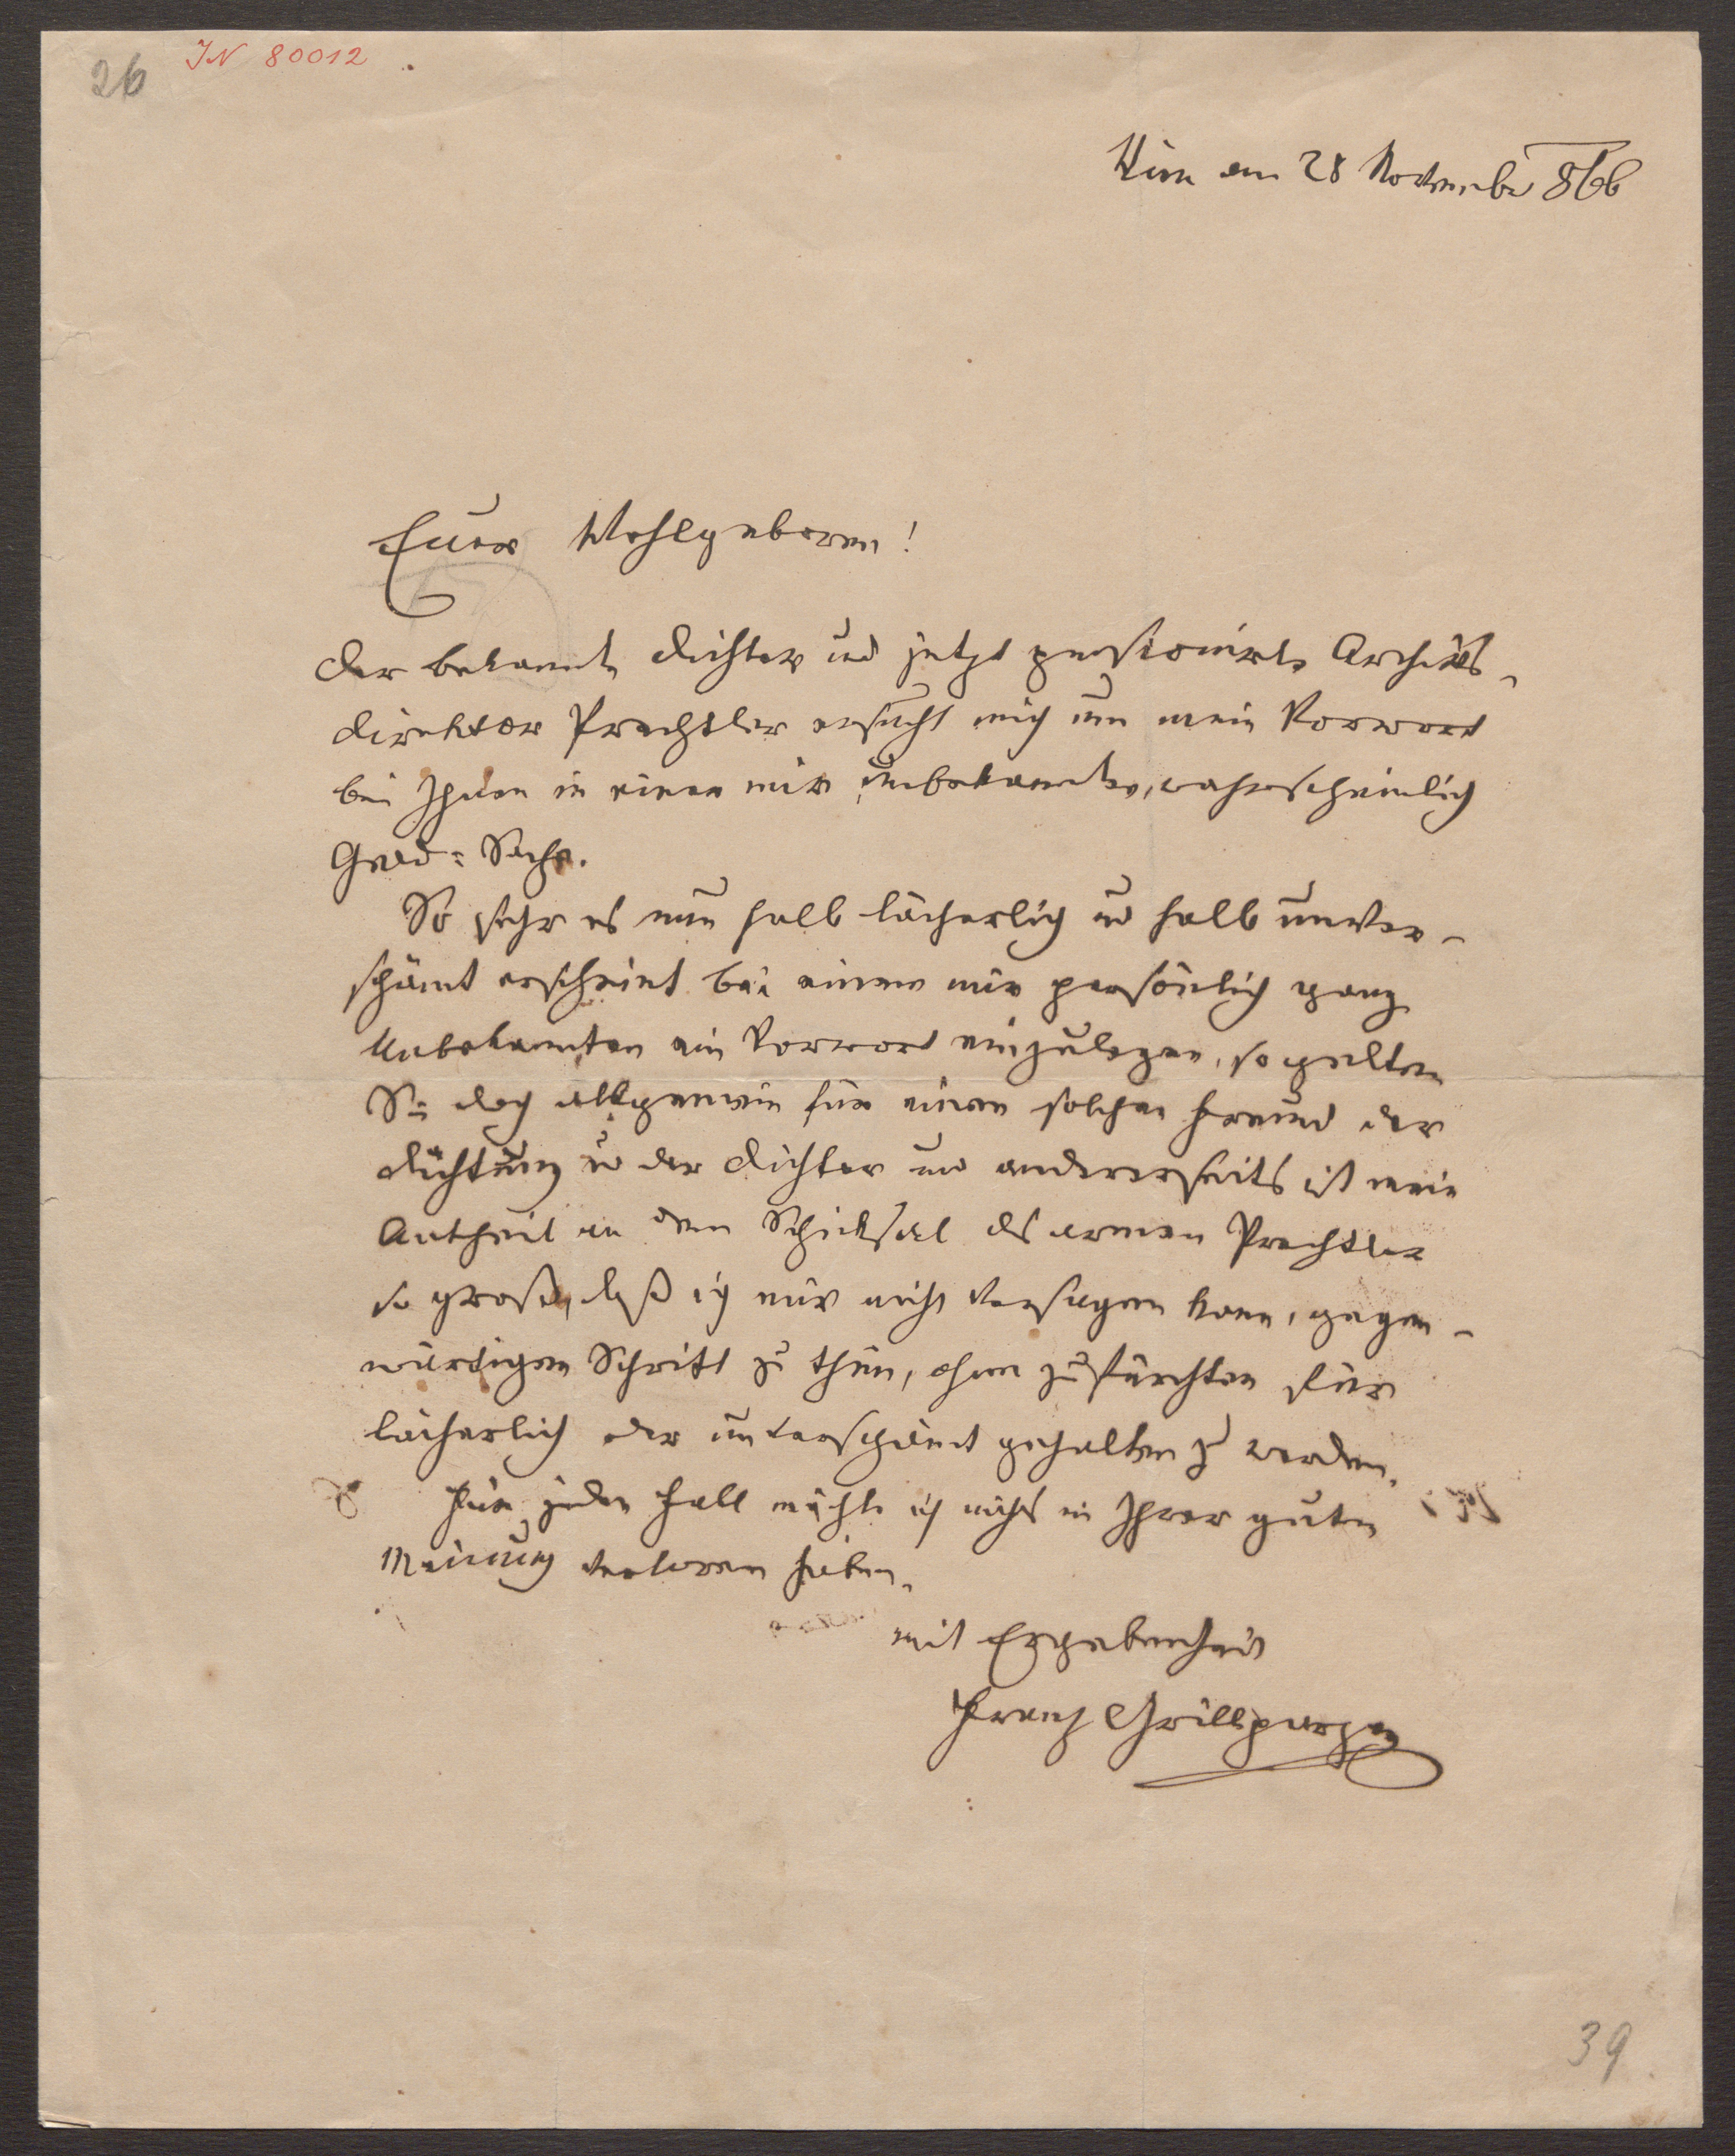 26 IN 80012
Wien am 28 November 866
Euer Wohlgeboren!
Der bekannte Dichter und jetzt pensionirte Archivs-
direktor Prechtler ersucht mich um mein Vorwort
bei Ihnen in einer mir unbekannten, wahrscheinlich
Geld-Sache.
So sehr es nun halb lächerlich und halb unver-
schämt erscheint bei einem mir persönlich ganz
Unbekannten ein Vorwort einzulegen, so gelten
Sie doch allgemein für einen solchen Freund der
Dichtung u der Dichter und andererseits ist mein
Antheil an dem Schicksal des armen Prechtler
so groß, daß ich mir nicht versagen kann, gegen-
wärtigen Schritt zu thun, ohne zu fürchten für
lächerlich oder unverschämt gehalten zu werden.
Für jeden Fall möchte ich nichts in Ihrer guten
Meinung verloren haben.
mit Ergebenheit
Franz Grillparzer
39